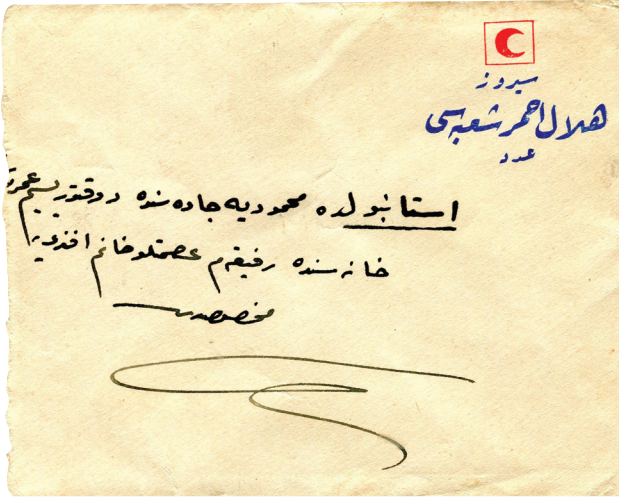 سيروز
هلال احمر شعبه سى
عدد
استانبولده محموديه جاده سنده دوقتور بسيم عمر
خانه سنده رفيقه م عصمتلو خانم افندى يه
مخصوصدر